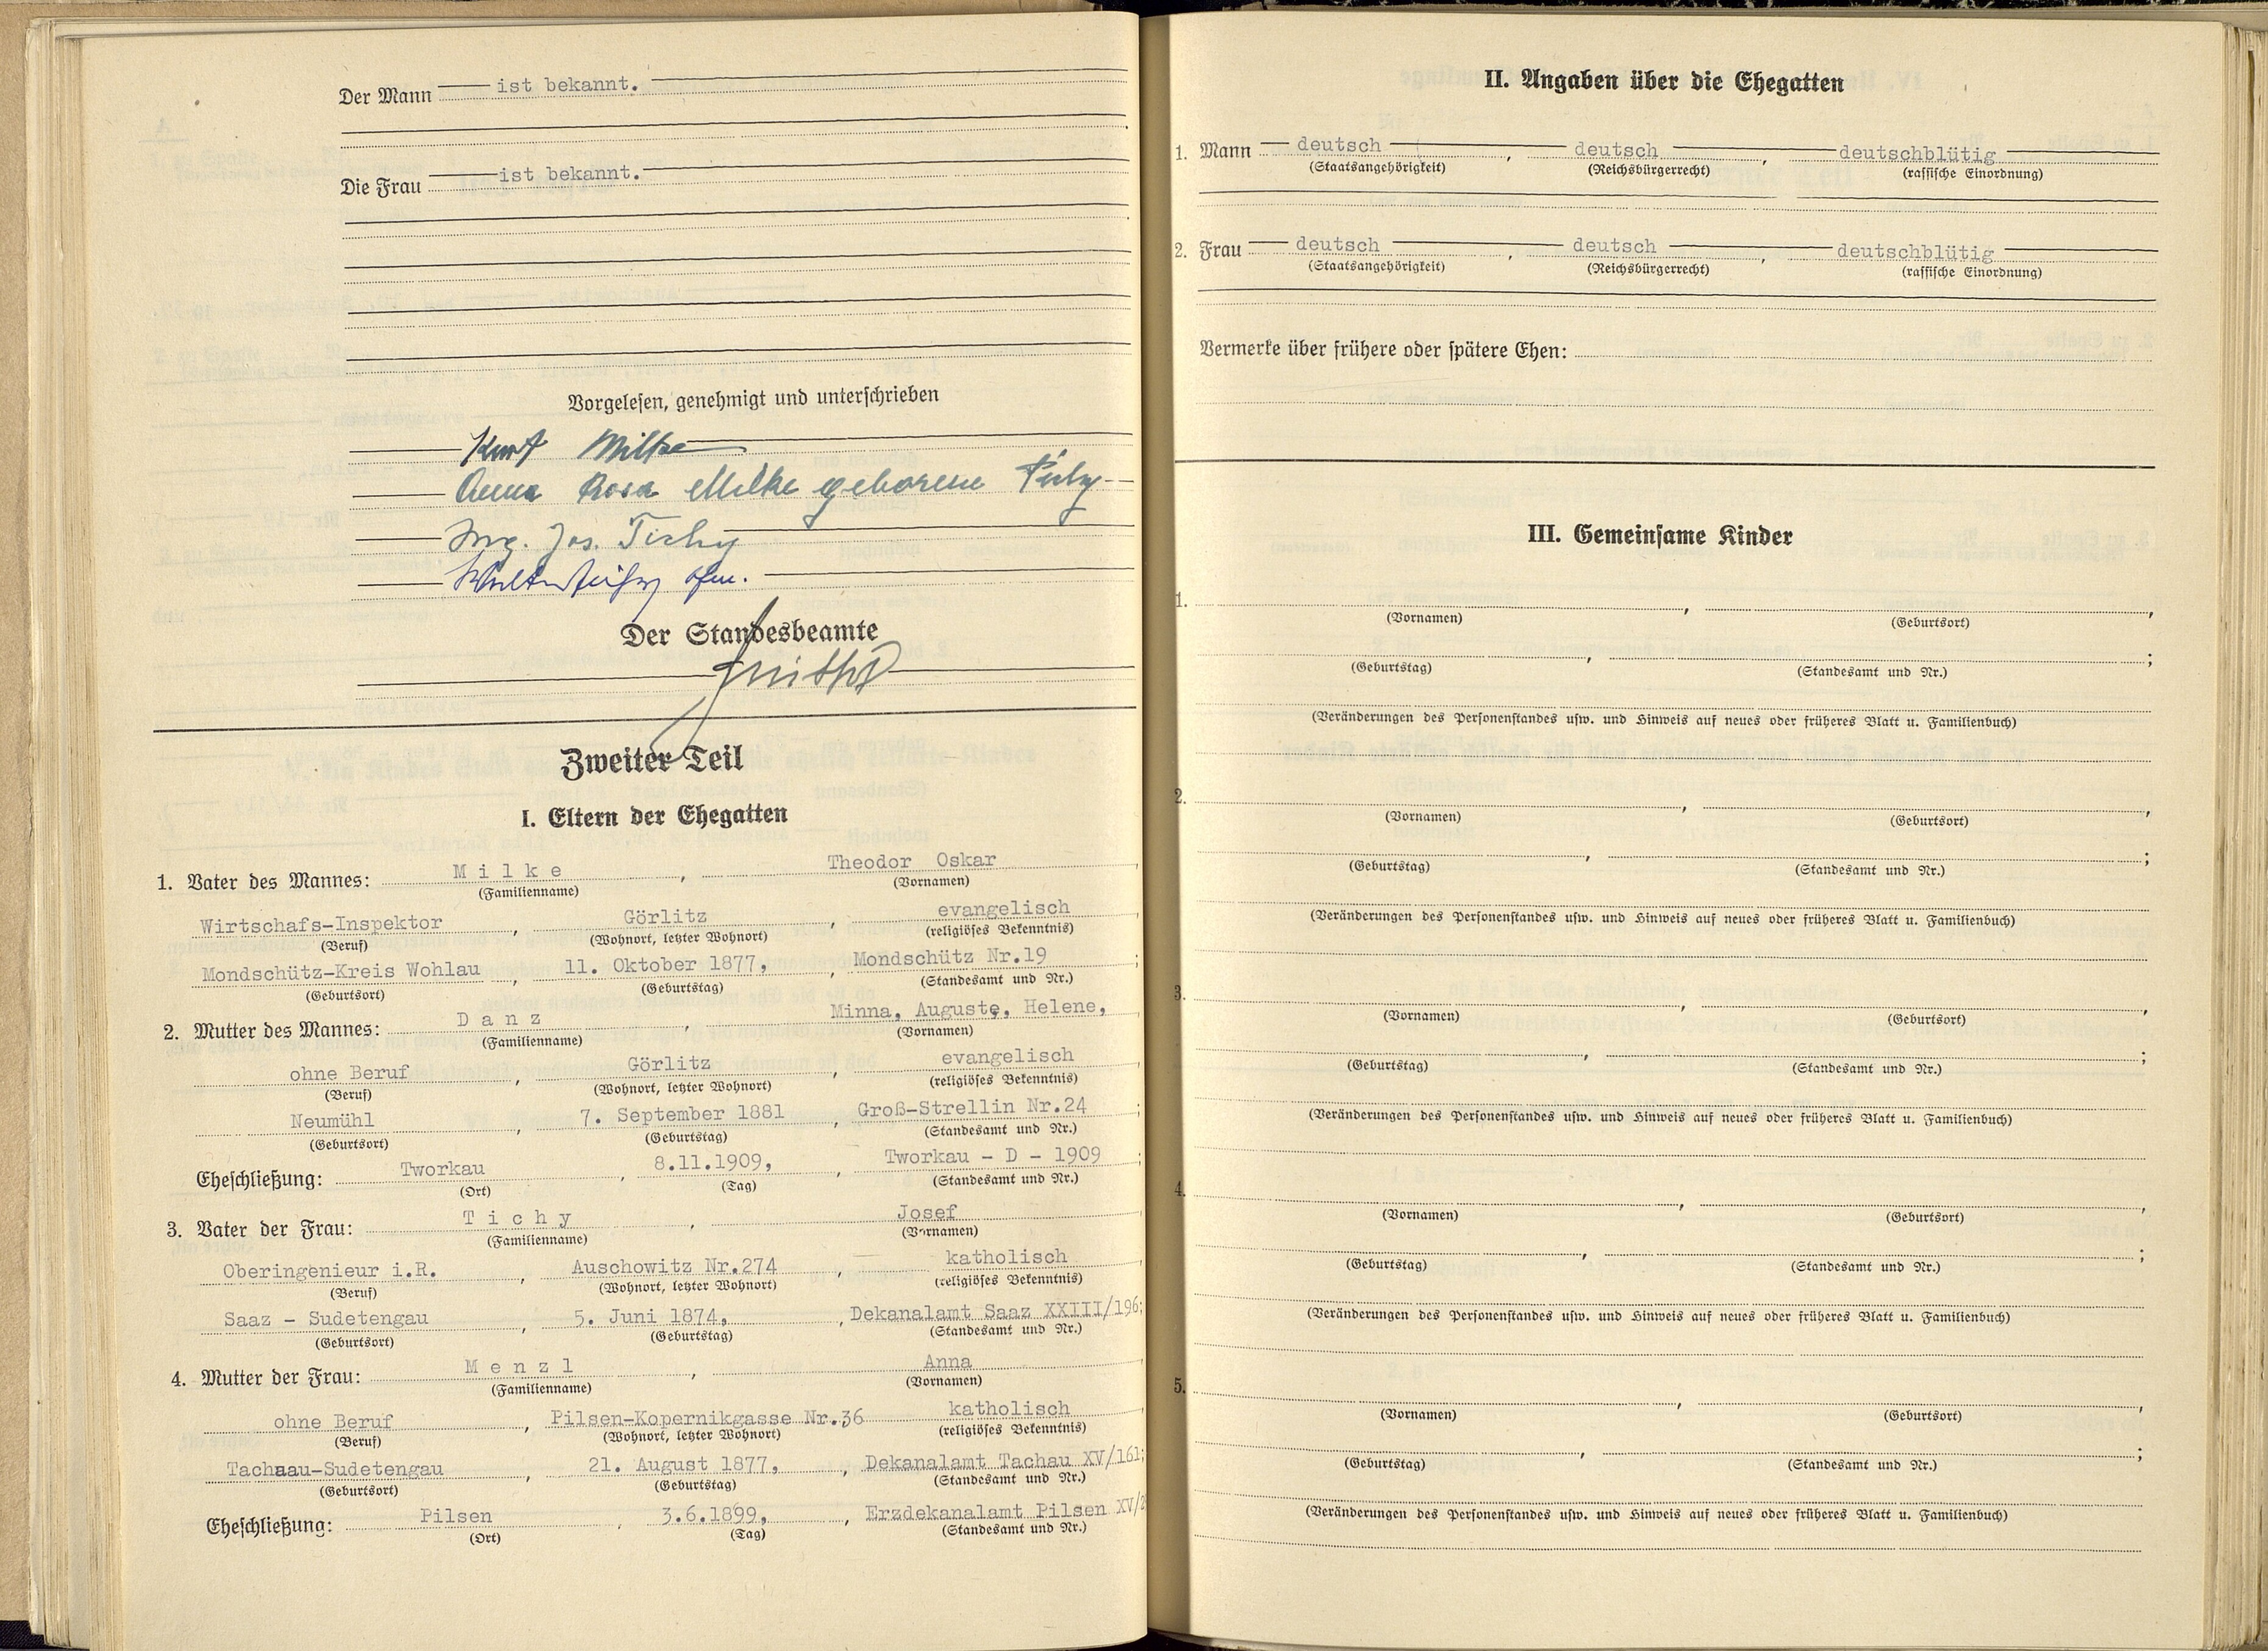 Der Mann ist bekannt.
Die Frau ist bekannt.
Vorgelesen, genehmigt und unterschrieben
Kurt Milke
Anna Rosa Milke geborene Tichy
Ing. Jos. Tichy
Der Standesbeamte
Zweiter Teil
I. Eltern der Ehegatten
1. Vater des Mannes: Milke , Theodor Oskar
(Familienname) (Vornamen)
Wirtschafs-Inspektor , Görlitz , evangelisch
(Beruf) (Wohnort, letzter Wohnort) (religiöses Bekenntnis)
Mondschütz-Kreis Wohlau , 11. Oktober 1877, , Mondschütz Nr.19 ;
(Geburtsort) (Geburtstag) (Standesamt und Nr.)
2. Mutter des Mannes: Danz , Minna, Auguste, Helene,
(Familienname) (Vornamen)
ohne Beruf , Görlitz , evangelisch
(Beruf) (Wohnort, letzter Wohnort) (religiöses Bekenntnis)
Neumühl , 7. September 1881 , Groß-Strellin Nr.24 ;
(Geburtsort) (Geburtstag) (Standesamt und Nr.)
Eheschließung: Tworkau , 8.11.1909, , Tworkau - D - 1909 ;
(Ort) (Tag) (Standesamt und Nr.)
3. Vater der Frau: Tichy , Josef
(Familienname) (Vornamen)
Oberingenieur i.R. , Auschowitz Nr.274 , katholisch
(Beruf) (Wohnort, letzter Wohnort) (religiöses Bekenntnis)
Saaz - Sudetengau , 5. Juni 1874, , Dekanalamt Saaz XXIII/196;
(Geburtsort) (Geburtstag) (Standesamt und Nr.)
4. Mutter der Frau: Menzl , Anna
(Familienname) (Vornamen)
ohne Beruf , Pilsen-Kopernikgasse Nr.36 katholisch
(Beruf) (Wohnort, letzter Wohnort) (religiöses Bekenntnis)
Tachaau-Sudetengau , 21. August 1877, , Dekanalamt Tachau XV/161;
(Geburtsort) (Geburtstag) (Standesamt und Nr.)
Eheschließung: Pilsen , 3.6.1899, , Erzdekanalamt Pilsen XV/2
(Ort) (Tag) (Standesamt und Nr.)
II. Angaben über die Ehegatten
1. Mann deutsch , deutsch , deutschblütig
(Staatsangehörigkeit) (Reichsbürgerrecht) (rassische Einordnung)
2. Frau deutsch , deutsch , deutschblütig
(Staatsangehörigkeit) (Reichsbürgerrecht) (rassische Einordnung)
Vermerke über frühere oder spätere Ehen:
III. Gemeinsame Kinder
1. , ,
(Vornamen) (Geburtsort)
, ;
(Geburtstag) (Standesamt und Nr.)
(Veränderungen des Personenstandes usw. und Hinweis auf neues oder früheres Blatt u. Familienbuch)
2. , ,
(Vornamen) (Geburtsort)
, ;
(Geburtstag) (Standesamt und Nr.)
(Veränderungen des Personenstandes usw. und Hinweis auf neues oder früheres Blatt u. Familienbuch)
3. , ,
(Vornamen) (Geburtsort)
, ;
(Geburtstag) (Standesamt und Nr.)
(Veränderungen des Personenstandes usw. und Hinweis auf neues oder früheres Blatt u. Familienbuch)
4. , ,
(Vornamen) (Geburtsort)
, ;
(Geburtstag) (Standesamt und Nr.)
(Veränderungen des Personenstandes usw. und Hinweis auf neues oder früheres Blatt u. Familienbuch)
5. , ,
(Vornamen) (Geburtsort)
, ;
(Geburtstag) (Standesamt und Nr.)
(Veränderungen des Personenstandes usw. und Hinweis auf neues oder früheres Blatt u. Familienbuch)